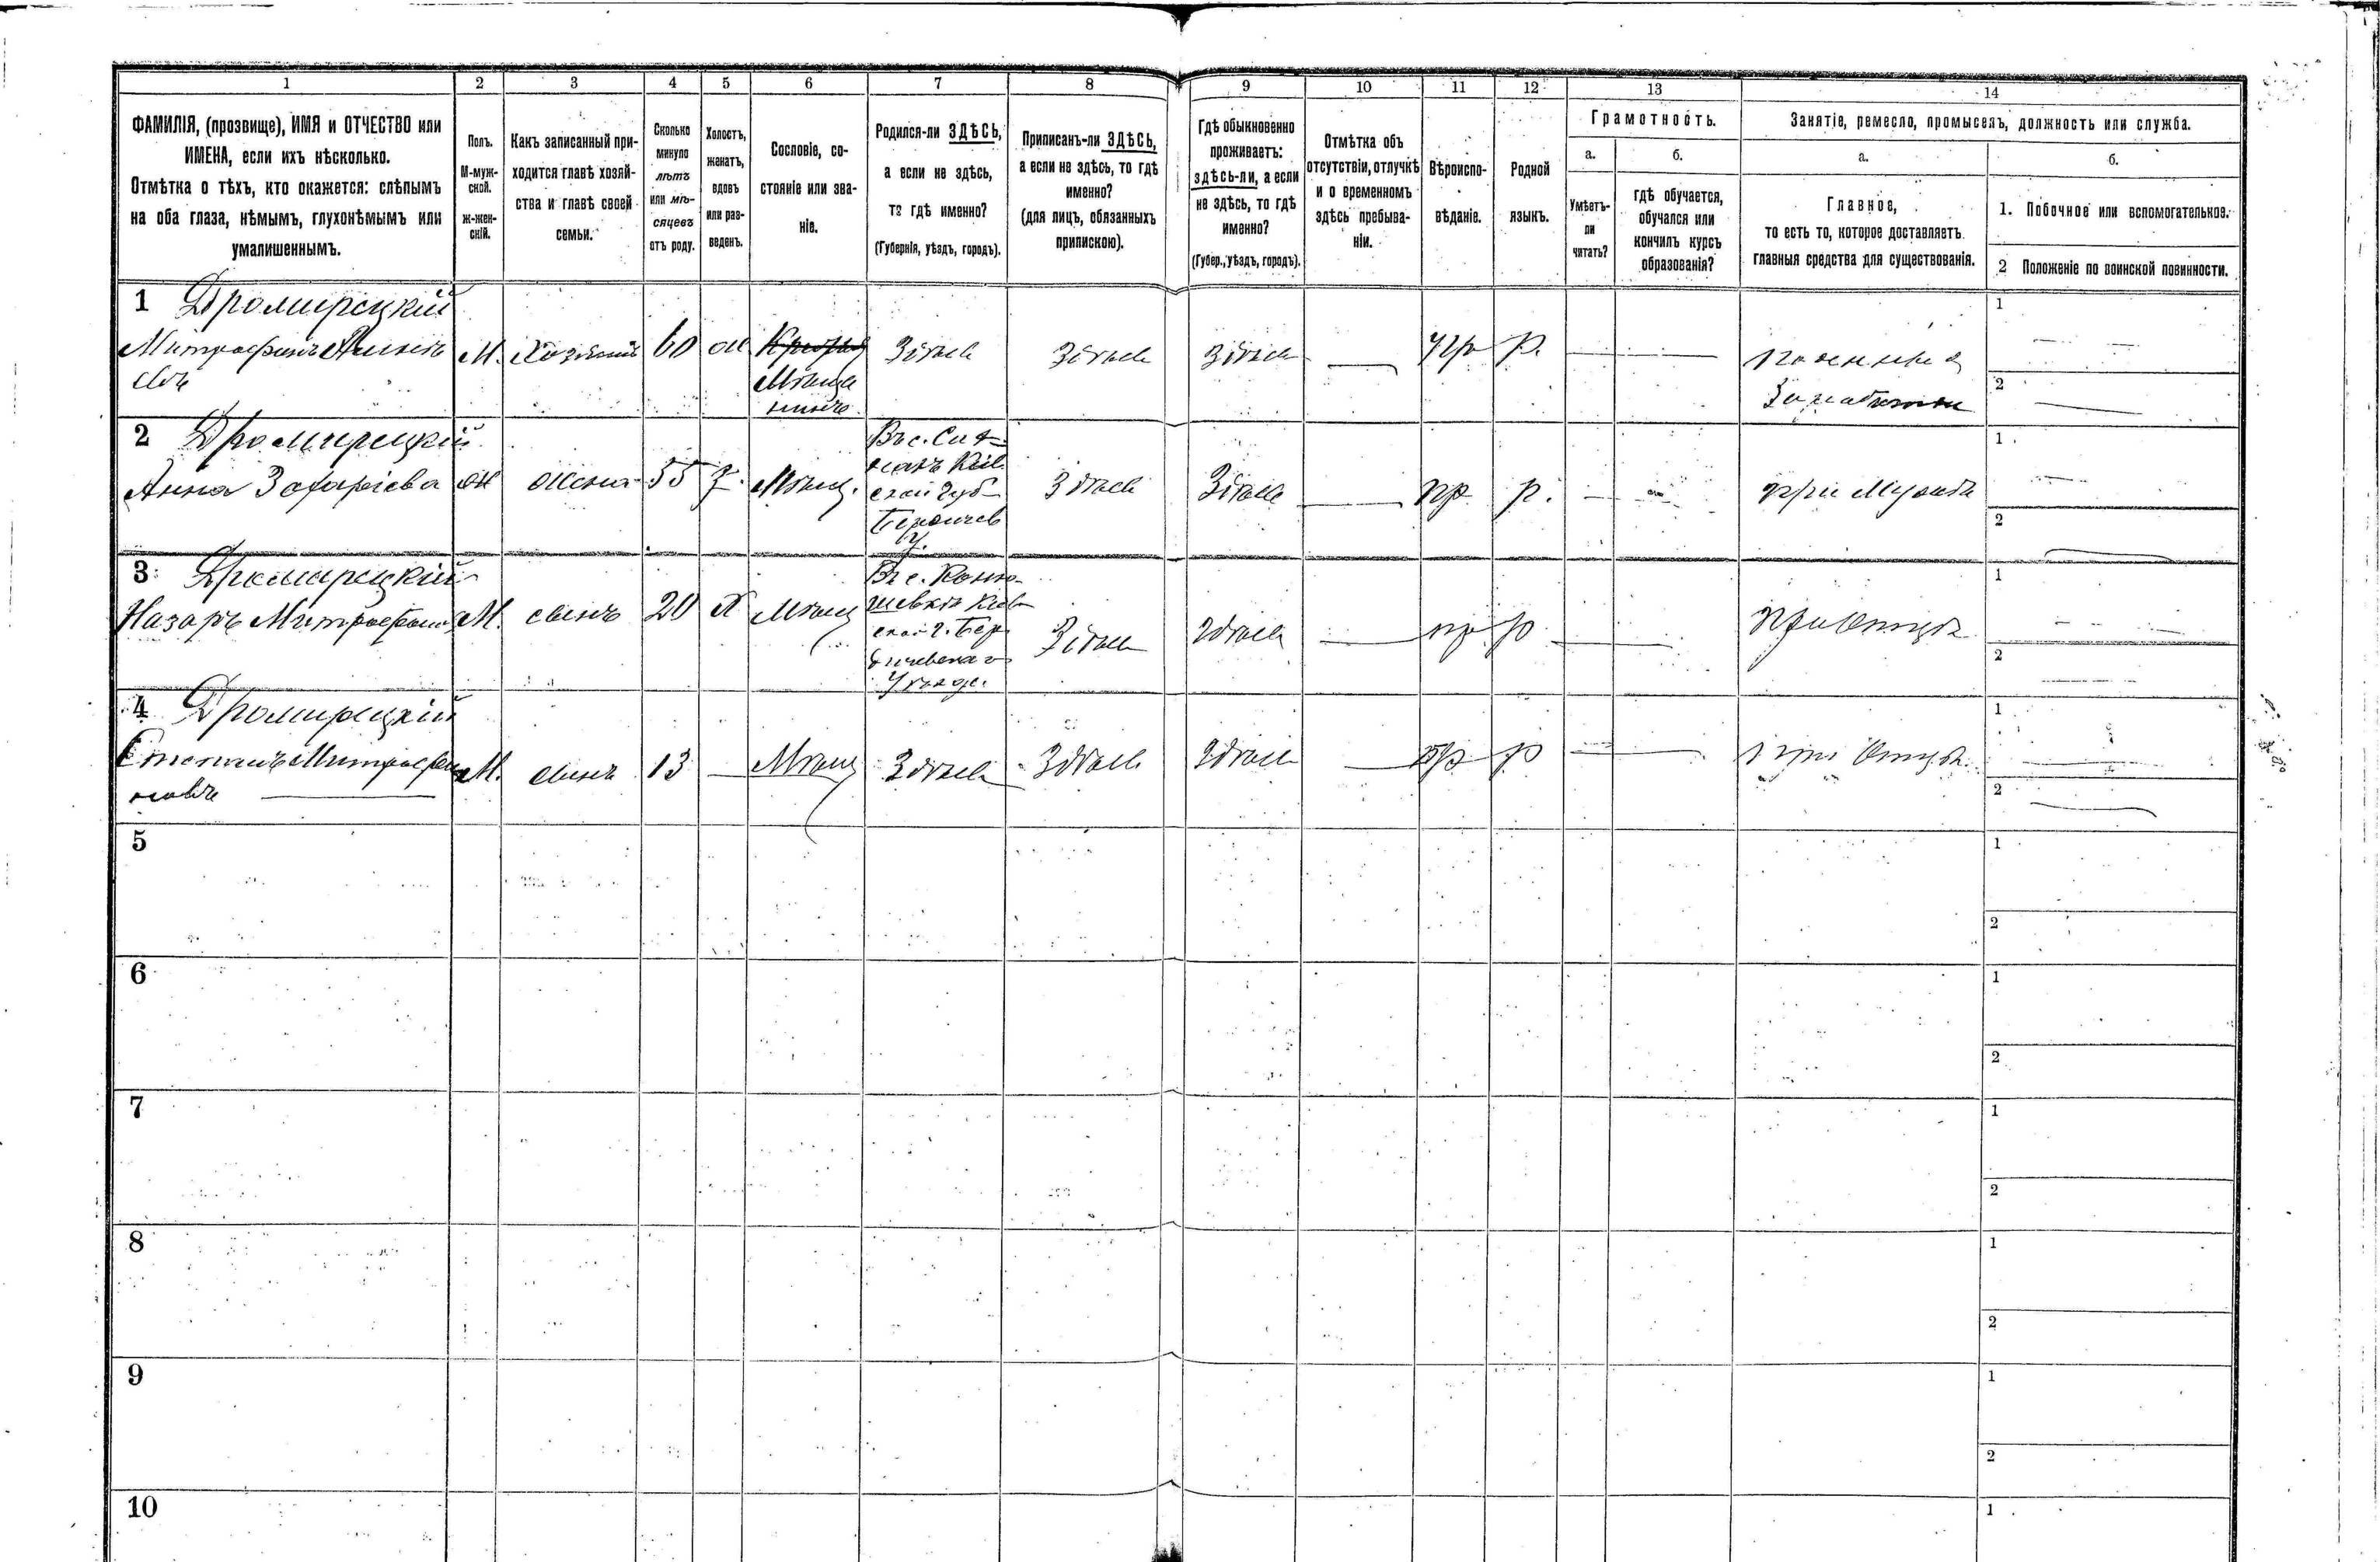 1 2 3 4 5 6 7 8 9 10 11 12 13 14
ФАМИЛІЯ, (прозвище), ИМЯ и ОТЧЕСТВО или
ИМЕНА, если ихъ нѣсколько.
Отмѣтка о тѣхъ, кто окажется: слѣпымъ
на оба глаза, нѣмымъ, глухонѣмымъ или
умалишеннымъ.
Полъ.
М-муж-
ской.
ж-жен-
скій.
Какъ записанный при-
ходится главѣ хозяй-
ства и главѣ своей
семьи.
Сколько
минуло
лѣтъ
или мѣ-
сяцевъ
отъ роду.
Холостъ,
женатъ,
вдовъ
или раз-
веденъ.
Сословіе, со-
стояніе или зва-
ніе.
Родился-ли ЗДѢСЬ,
а если не здѣсь,
то гдѣ именно?
(Губернія, уѣздъ, городъ).
Приписанъ-ли ЗДѢСЬ,
а если не здѣсь, то гдѣ
именно?
(для лицъ, обязанныхъ
припискою).
Гдѣ обыкновенно
проживаетъ:
здѣсь-ли, а если
не здѣсь, то гдѣ
именно?
(Губер., уѣздъ, городъ).
Отмѣтка объ
отсутствіи, отлучкѣ
и о временномъ
здѣсь пребыва-
ніи.
Вѣроиспо-
вѣданіе.
Родной
языкъ.
Грамотность.
а.
Умѣетъ-
ли
читать?
б.
гдѣ обучается,
обучался или
кончилъ курсъ
образованія?
Занятіе, ремесло, промыселъ, должность или служба.
а.
Главное,
то есть то, которое доставляетъ
главныя средства для существованія.
б.
1. Побочное или вспомогательное.
2 Положеніе по воинской повинности.
1 Дромирецкій
Митрофанъ
М. Хозяинъ 60 ж
Мѣща
нинъ
Здѣсь Здѣсь Здѣсь — пр р. — —
1 —
2 —
2 Дромирецкій
Анна Захаріева ж жена 55 з. Мѣщ.
Въ с.
ской губ
Бердичев
у.
Здѣсь Здѣсь — пр р. — —
при Мужѣ
1 —
2 —
3 Дромирецкій
Назаръ М. сынъ 20 Х Мѣщ
Въ с.
Кіев
ской г. Бер
дичевскаго
Уѣзда.
Здѣсь Здѣсь — пр р — —
при Отцѣ
1 —
2 —
4 Дромирецкій
Степанъ Митрофа
новъ — М. сынъ 13 — Мѣщ Здѣсь Здѣсь Здѣсь — пр р — —
при Отцѣ
1 —
2 —
5
1
2
6
1
2
7
1
2
8
1
2
9
1
2
10
1